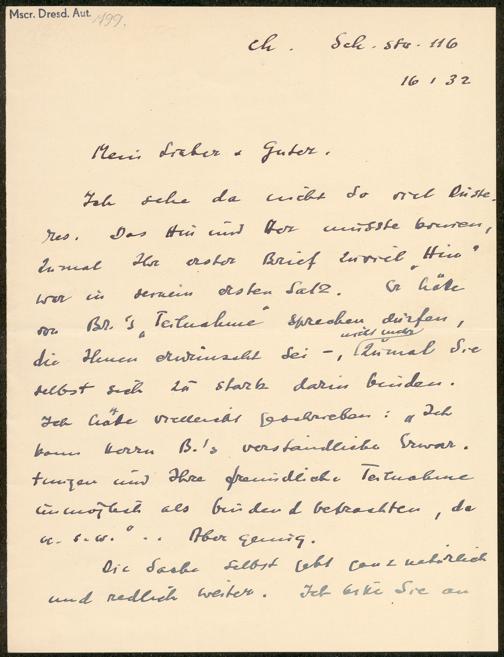 Mscr. Dresd. Aut. 1499.
Ch. Sch. str. 116
16 1 32
Mein Lieber & Guter.
Ich sehe da nicht so viel Düste-
res. Das Hin und Her musste kommen,
zumal Ihr erster Brief zuviel „Hin“
war in seinem ersten Satz. Er hätte
von Br.'s „Teilnahme“ sprechen dürfen,
nicht mehr
die Ihnen erwünscht sei –, zumal Sie
selbst sich zu stark darin binden.
Ich hätte vielleicht geschrieben: „Ich
kann Herrn B.'s verständliche Erwar-
tungen und Ihre freundliche Teilnahme
unmöglich als bindend betrachten, da
u. s. w.“ . . Aber genug.
Die Sache selbst geht ganz natürlich
und redlich weiter. Ich bitte Sie an